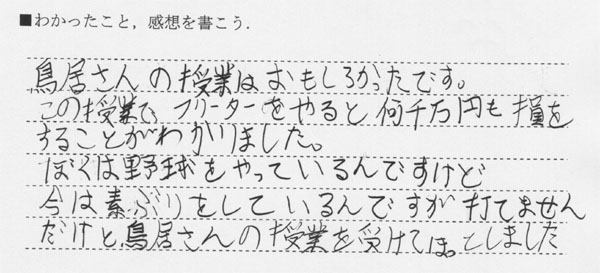 ■わかったこと，感想を書こう．
鳥居さんの授業はおもしろかったです。
この授業で、フリーターをやると何千万円も損を
することがわかりました。
ぼくは野球をやっているんですけど
今は素ぶりをしているんですが打てません
だけど鳥居さんの授業を受けてほっとしました